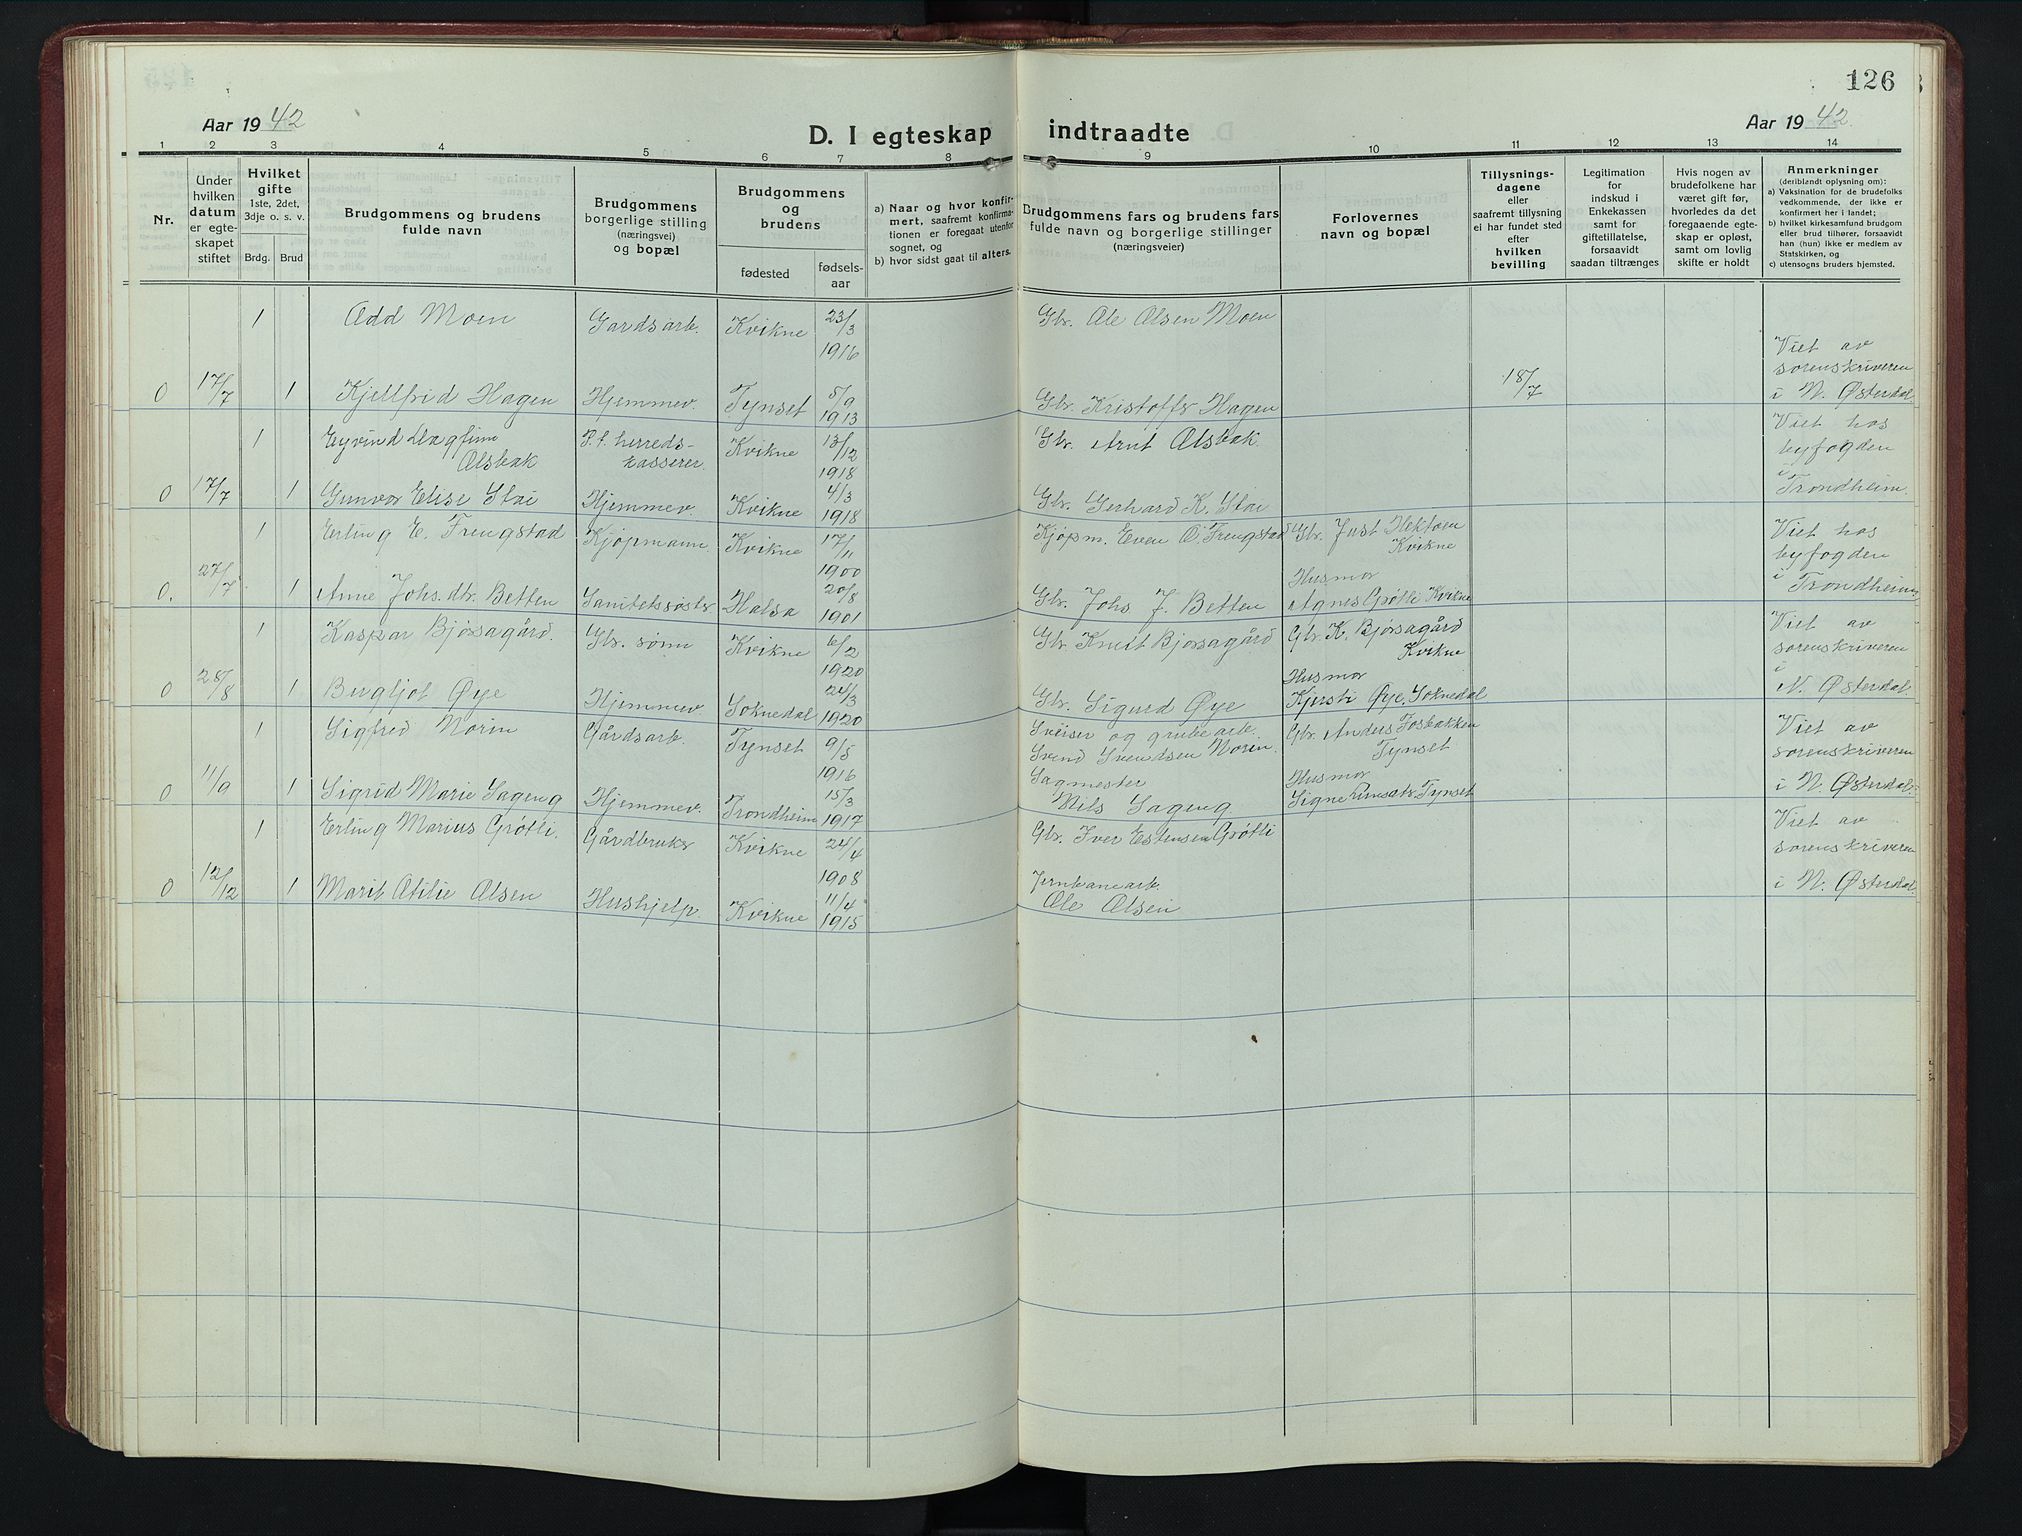 126
Aar 1942
D. I egteskap indtraadte
Aar 1942
1 2 3 4 5 6 7 8 9 10 11 12 13 14
Nr.
Under hvilken datum er egteskapet stiftet
Hvilket gifte
1ste, 2det, 3dje o. s. v.
Brdg. Brud
Brudgommens og brudens fulde navn
Brudgommens borgerlige stilling (næringsvei) og bopæl
Brudgommens og brudens
fødested
fødsels-aar
a) Naar og hvor konfirmert, saafremt konfirmationen er foregaat utenfor sognet, og
b) hvor sidst gaat til alters.
Brudgommens fars og brudens fars fulde navn og borgerlige stillinger (næringsveier)
Forlovernes navn og bopæl
Tillysningsdagene eller saafremt tillysning ei har fundet sted efter hvilken bevilling
Legitimation for indskud i Enkekassen samt for giftetillatelse, forsaavidt saadan tiltrænges
Hvis nogen av brudefolkene har været gift før, hvorledes da det foregaaende egteskap er opløst, samt om lovlig skifte er holdt
Anmerkninger
(deriblandt oplysning om):
a) Vaksination for de brudefolks vedkommende, der ikke er konfirmert her i landet;
b) hvilket kirkesamfund brudgom eller brud tilhører, forsaavidt han (hun) ikke er medlem av Statskirken, og
c) utensogns bruders hjemsted.
1 Odd Moen Gardsarb. Kvikne 23/3 1916 Gbr. Ole Olsen Moen
0 17/7 1 Kjellfrid Hagen Hjemmev. Tynset 5/9 1913 Gbr. Kristoffer Hagen 18/7 Viet av sorenskriveren i N. Østerdal.
1 Eyvind Dagfinn Olsbak P.t. herredskasserer Kvikne 13/12 1918 Gbr. Arnt Olsbak.
0 17/7 1 Gunvor Elise Stai Hjemmev. Kvikne 4/3 1918 Gbr. Gerhard K. Stai Viet hos byfogden i Trondheim.
1 Erling E. Frengstad Kjøpmann Kvikne 17/11 1900 Kjøpm. Even O. Frengstad Gbr. Just Hektoen Kvikne
0. 27/7 1 Anne Johs.dtr. Betten Sanitetssøster Halsa 20/8 1901 Gbr. Johs J. Betten Husmor Agnes Grøtli Kvikne Viet hos byfogden i Trondheim.
1 Kaspar Bjørsagård. Gbr. sønn Kvikne 6/2 1920 Gbr. Knut Bjørsagård Gbr. K. Bjørsagård Kvikne
0 28/8 1 Bergljot Øye Hjemmev. Soknedal 24/3 1920 Gbr. Sigurd Øye Husmor Kjersti Øye, Soknedal Viet av sorenskriveren i N. Østerdal.
1 Sigfred Norin Gårdsarb. Tynset 9/5 1916 Sveiser og grubearb. Svend Svendsen Norin. Gbr. Anders Fosbakken Tynset
0 11/9 1 Sigrid Marie Sageng Hjemmev. Trondheim 15/3 1917 Sagmester Nils Sageng Husmor Signe Tynset Viet av sorenskriveren i N. Østerdal.
1 Erling Marius Grøtli. Gårdbruker Kvikne 24/4 1908 Gbr. Iver Estensen Grøtli
0 12/12 1 Marit Otilie Olsen Hushjelp. Kvikne 11/4 1915 Jernbanearb. Ole Olsen Viet av sorenskriveren i N. Østerdal.